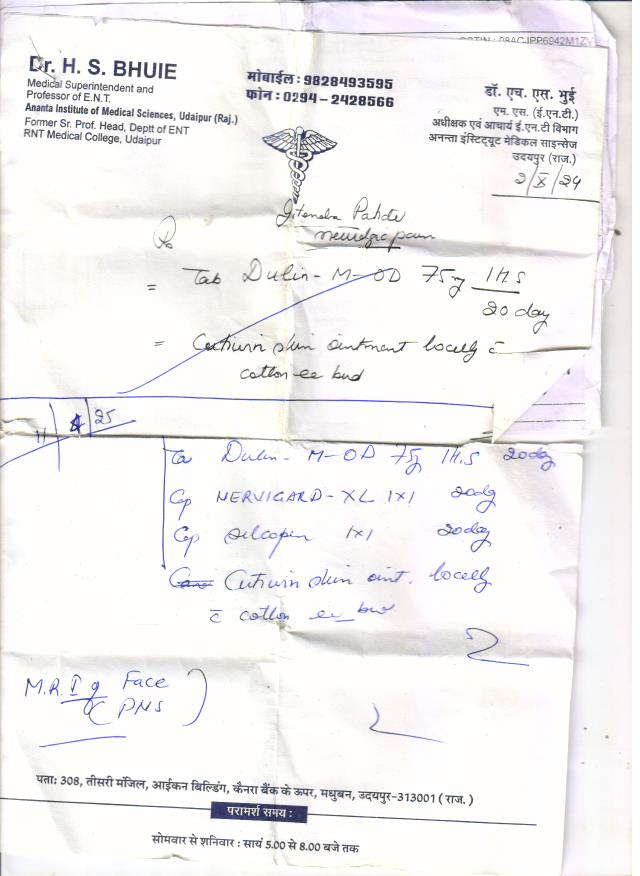 Dr. H. S. BHUIE
Medical Superintendent and
Professor of E.N.T.
Ananta Institute of Medical Sciences, Udaipur (Raj.)
Former Sr. Prof. Head, Deptt of ENT
RNT Medical College, Udaipur
मोबाईल : 9828493595
फोन : 0294 - 2428566
डॉ. एच. एस. भुई
एम. एस. (ई.एन.टी.)
अधीक्षक एवं आचार्य ई.एन.टी विभाग
अनन्ता इंस्टिट्यूट मेडिकल साइन्सेज
उदयपुर (राज.)
2/X/24
Jitendra
neuralgic pain
Rx
= Tab Dulin-M-OD 75mg 1H.S
20 day
= Cutiwin skin ointment locally c̄
cotton ee bud
11/4/25
Tab Dulin-M-OD 75mg 1H.S 20day
Cap NERVIGARD-XL 1x1 20day
Cap 1x1 20day
Cutiwin skin oint. locally
c̄ cotton ee bud
M.R.I of Face
PNS
पता: 308, तीसरी मंजिल, आईकन बिल्डिंग, कैनरा बैंक के ऊपर, मधुबन, उदयपुर-313001 ( राज. )
परामर्श समय :
सोमवार से शनिवार : सायं 5.00 से 8.00 बजे तक